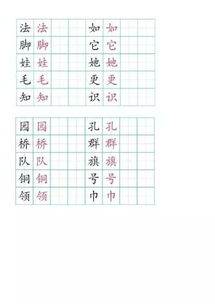 法法 如如
脚脚 它它
娃娃 她她
毛毛 更更
知知 识识
园园 孔孔
桥桥 群群
队队 旗旗
铜铜 号号
领领 巾巾